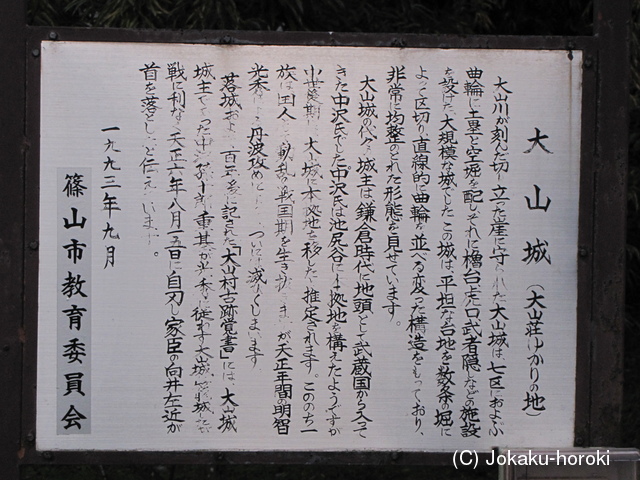 大山城（大山荘ゆかりの地）
大山川が刻んだ切り立った崖に守られた大山城は、七区におよぶ
曲輪に土塁と空堀を配し、それぞれに櫓台・虎口・武者隠しなどの施設
を設けた大規模な城でした。この城は、平坦な台地を数条の堀に
よって区切り、直線的に曲輪を並べる変った構造をもっており、
非常に均整のとれた形態を見せています。
大山城の代々の城主は、鎌倉時代に地頭として武蔵国から入って
きた中沢氏でした。中沢氏は池尻谷に本拠地を構えたようですが
期に大山城に本拠地を移したと推定されます。こののち一
族は国人として動乱の戦国期を生き抜きますが、天正年間の明智
光秀による丹波攻めにより、ついに滅亡してしまいます
落城およそ百年後に記された「大山村古跡覚書」には、大山城
城主であった中沢 重基が光秀に従わず大山城に籠城したが
戦に利なく天正六年八月十五日に自刃し、家臣の向井左近が
首を落としたと伝えています。
一九九三年九月
篠山市教育委員会
(C) Jokaku-horoki